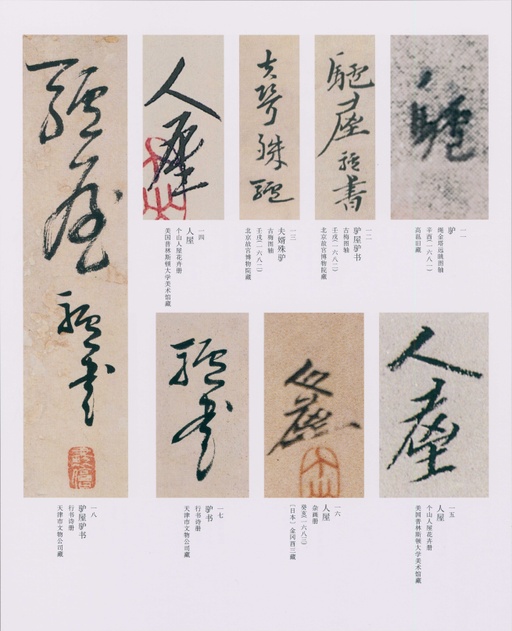 驢
一一
驴
绳金塔远眺图轴
辛酉(一六八一)
高邕旧藏
驢屋驢書
一二
驴屋驴书
古梅图轴
壬戌(一六八二)
北京故宫博物院藏
夫壻殊驢
一三
夫婿殊驴
古梅图轴
壬戌(一六八二)
北京故宫博物院藏
人屋
一四
人屋
个山人屋花卉册
美国普林斯顿大学美术馆藏
人屋
一五
人屋
个山人屋花卉册
美国普林斯顿大学美术馆藏
人屋
一六
人屋
杂画册
癸亥(一六八三)
[日本]金冈酉三藏
驢書
一七
驴书
行书诗册
天津市文物公司藏
驢屋驢書
一八
驴屋驴书
行书诗册
天津市文物公司藏